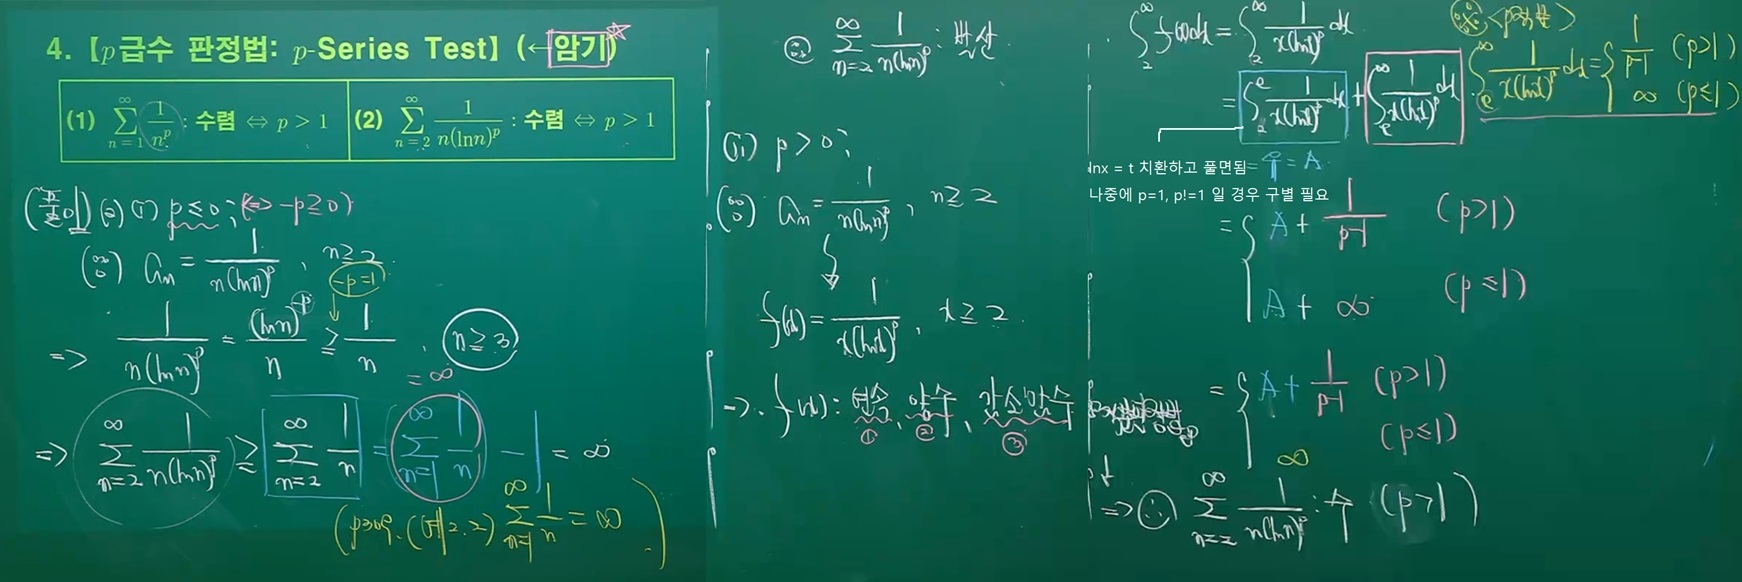 4.【p급수 판정법: p-Series Test】(←암기)
(1) ∑_{n=1}^{∞} 1/n^p : 수렴 ⇔ p > 1
(2) ∑_{n=2}^{∞} 1/(n(lnn)^p) : 수렴 ⇔ p > 1
(2) (i) p ≤ 0; (⇔ -p ≥ 0)
a_n = 1/(n(lnn)^p), n ≥ 2
-p=1
⇒ 1/(n(lnn)^p) = (lnn)^{-p}/n ≥ 1/n, n ≥ 3
= ∞
⇒ ∑_{n=2}^{∞} 1/(n(lnn)^p) ≥ ∑_{n=2}^{∞} 1/n = ∑_{n=1}^{∞} 1/n - 1 = ∞
∑_{n=1}^{∞} 1/n = ∞)
∴ ∑_{n=2}^{∞} 1/(n(lnn)^p) : 발산.
(ii) p > 0;
a_n = 1/(n(lnn)^p), n ≥ 2
f(x) = 1/(x(lnx)^p), x ≥ 2
⇒ f(x): 연속, 양수, 감소함수
① ② ③
∫_2^∞ f(x)dx = ∫_2^∞ 1/(x(lnx)^p) dx
= ∫_2^e 1/(x(lnx)^p) dx + ∫_e^∞ 1/(x(lnx)^p) dx
lnx = t 치환하고 풀면됨
= 수 = A
나중에 p=1, p!=1 일 경우 구별 필요
= { A + 1/(p-1) (p>1)
A + ∞ (p≤1)
= { A + 1/(p-1) (p>1)
∞ (p≤1)
⇒ ∴ ∑_{n=2}^{∞} 1/(n(lnn)^p) : 수 (p>1)
∫_e^∞ 1/(x(lnx)^p) dx = { 1/(p-1) (p>1)
∞ (p≤1)